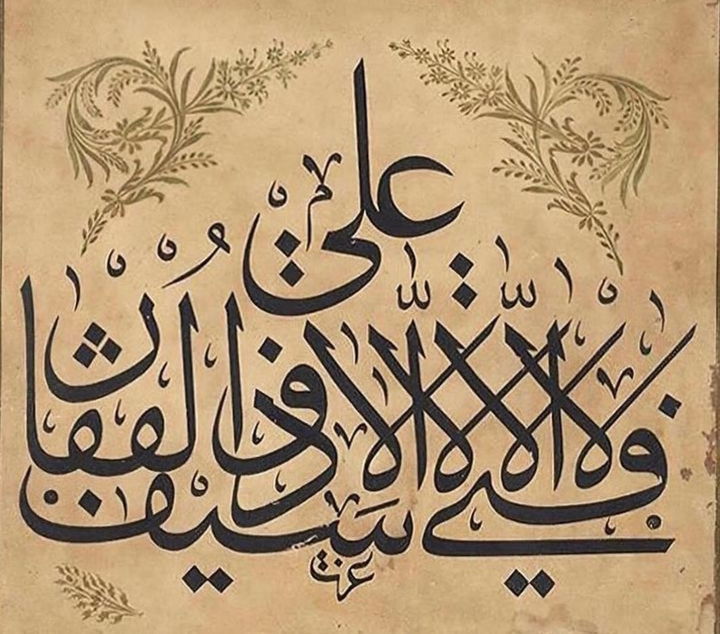 لا فتى الا علي لا سيف الا ذو الفقار
عزت